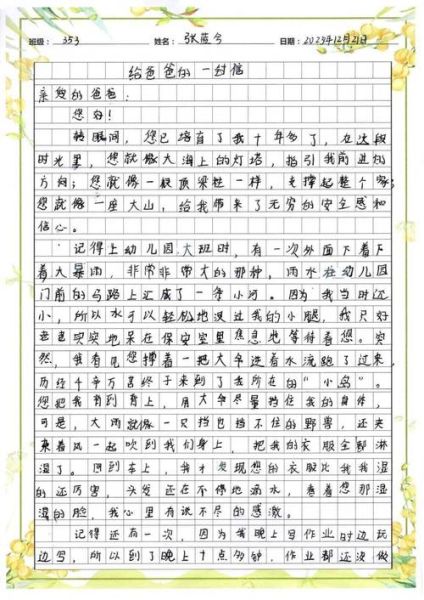 班级: 353 姓名: 张蓝兮 日期: 2023年12月21日
给爸爸的一封信
亲爱的爸爸:
您好!
转眼间,您已培育了我十年多了,在这段
时光里,您就像大海上的灯塔,指引我前进的
方向;您就像一根顶梁柱一样,支撑起整个家;
您就像一座大山,给我带来了无穷的安全感和
信心。
记得上幼儿园大班时,有一次外面下着下
着大暴雨,非常非常大的那种,雨水在幼儿园
门前的马路上汇成了一条小河。因为我当时还
小,所以水可以轻松地没过我的小腿,我只好
老老实实地呆在保安室里焦急地等待着您。突
然,我看见您撑着一把大伞逆着水流跑了过来,
历经千辛万苦终于来到了我所在的“小岛”。
您把我背到背上,用大伞尽量挡住我的身体,
可是,大雨就像一只挡也挡不住的野兽,还夹
束着风一起吹到我们身上,把我的衣服全部淋
湿了。回到车上,我才发现您的衣服比我我湿
的还厉害,头发还在不停地滴水,看着您那湿
湿的脸,我心里有说不尽的感激。
记得还有一次,因为我晚上写作业时边玩
边写,所以到了晚上十点多钟,作业都还没做